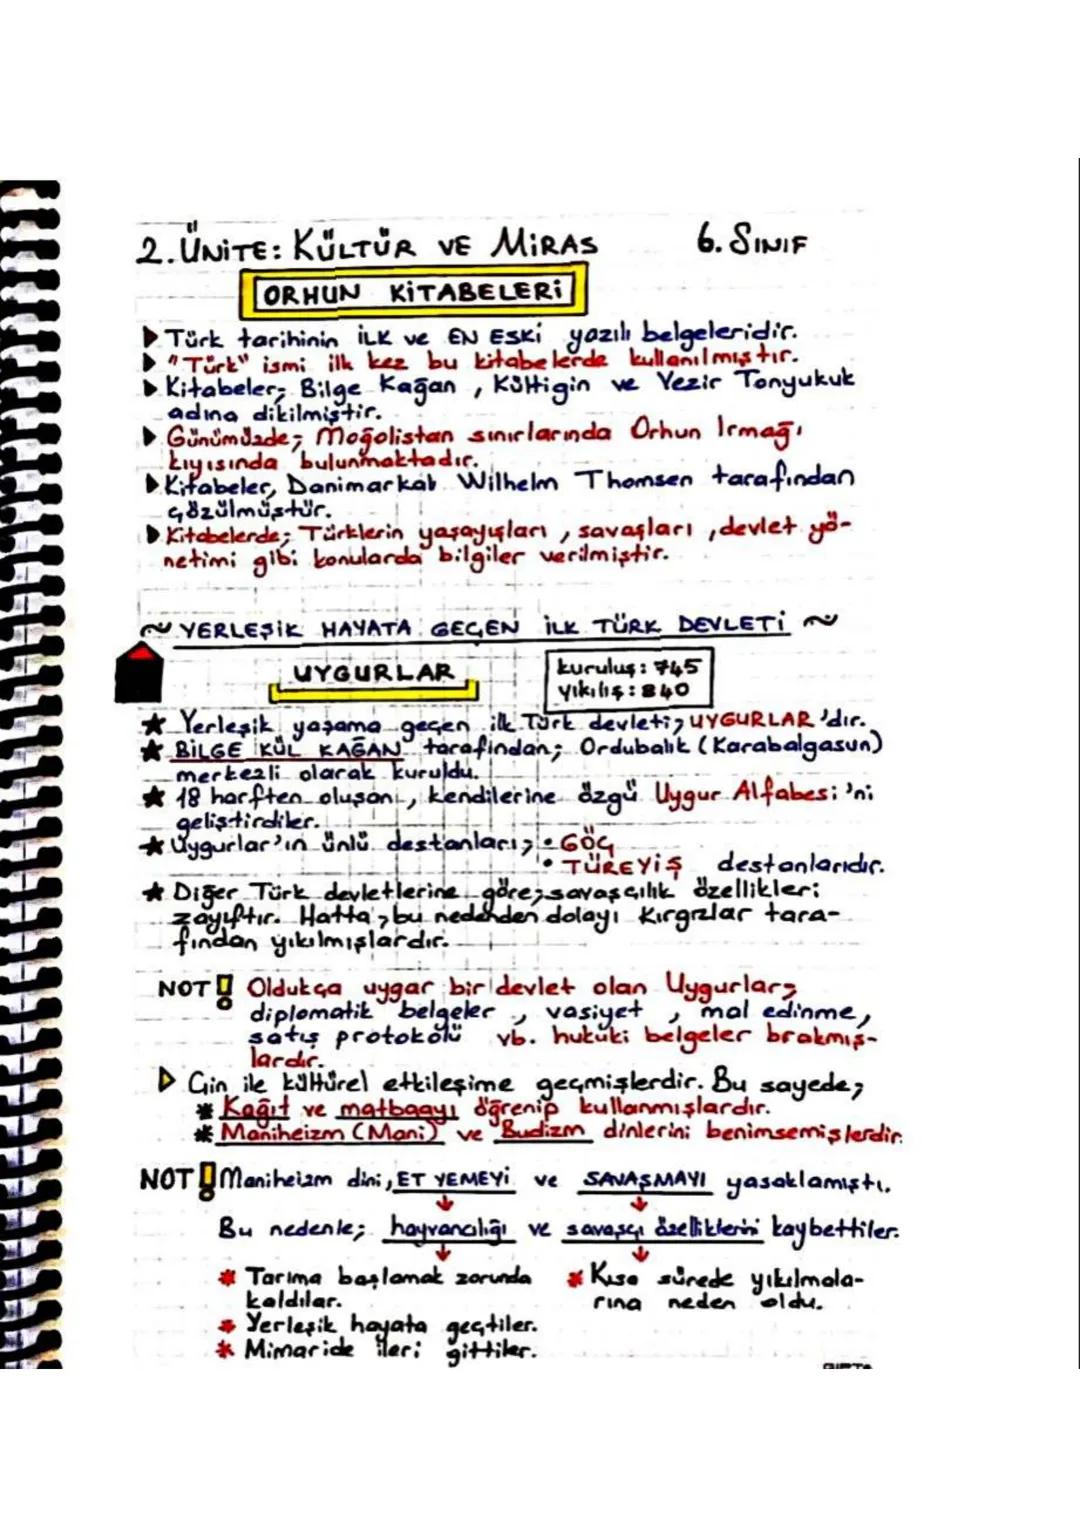 2. ÜNİTE: KÜLTÜR VE MİRAS 6. SINIF
ORHUN KİTABELERİ
Türk tarihinin İLK ve EN ESKİ yazılı belgeleridir.
"Türk" ismi ilk kez bu kitabelerde kullanılmıştır.
Kitabeler; Bilge Kağan, Kültigin ve Vezir Tonyukuk
adına dikilmiştir.
Günümüzde; Moğolistan sınırlarında Orhun Irmağı
kıyısında bulunmaktadır.
Kitabeler, Danimarkalı Wilhelm Thomsen tarafından
çözülmüştür.
Kitabelerde; Türklerin yaşayışları, savaşları, devlet yö-
netimi gibi konularda bilgiler verilmiştir.
~ YERLEŞİK HAYATA GEÇEN İLK TÜRK DEVLETİ ~
UYGURLAR
kuruluş: 745
yıkılış: 840
★ Yerleşik yaşama geçen ilk Türk devleti; UYGURLAR'dır.
★ BİLGE KÜL KAĞAN tarafından; Ordubalık (Karabalgasun)
merkezli olarak kuruldu.
★ 18 harften oluşan, kendilerine özgü Uygur Alfabesi'ni
geliştirdiler.
★ Uygurlar'ın ünlü destanları; • GÖÇ
• TÜREYİŞ destanlarıdır.
★ Diğer Türk devletlerine göre; savaşçılık özellikleri
zayıftır. Hatta, bu nedenden dolayı Kırgızlar tara-
fından yıkılmışlardır.
NOT! Oldukça uygar bir devlet olan Uygurlar;
diplomatik belgeler, vasiyet, mal edinme,
satış protokolü vb. hukuki belgeler bırakmış-
lardır.
Çin ile kültürel etkileşime geçmişlerdir. Bu sayede;
* Kağıt ve matbaayı öğrenip kullanmışlardır.
* Maniheizm (Mani) ve Budizm dinlerini benimsemişlerdir.
NOT! Maniheizm dini, ET YEMEYİ ve SAVAŞMAYI yasaklamıştı.
Bu nedenle; hayvancılığı ve savaşçı özelliklerini kaybettiler.
* Tarıma başlamak zorunda
kaldılar.
* Yerleşik hayata geçtiler.
* Mimaride ileri gittiler.
* Kısa sürede yıkılmala-
rına neden oldu.